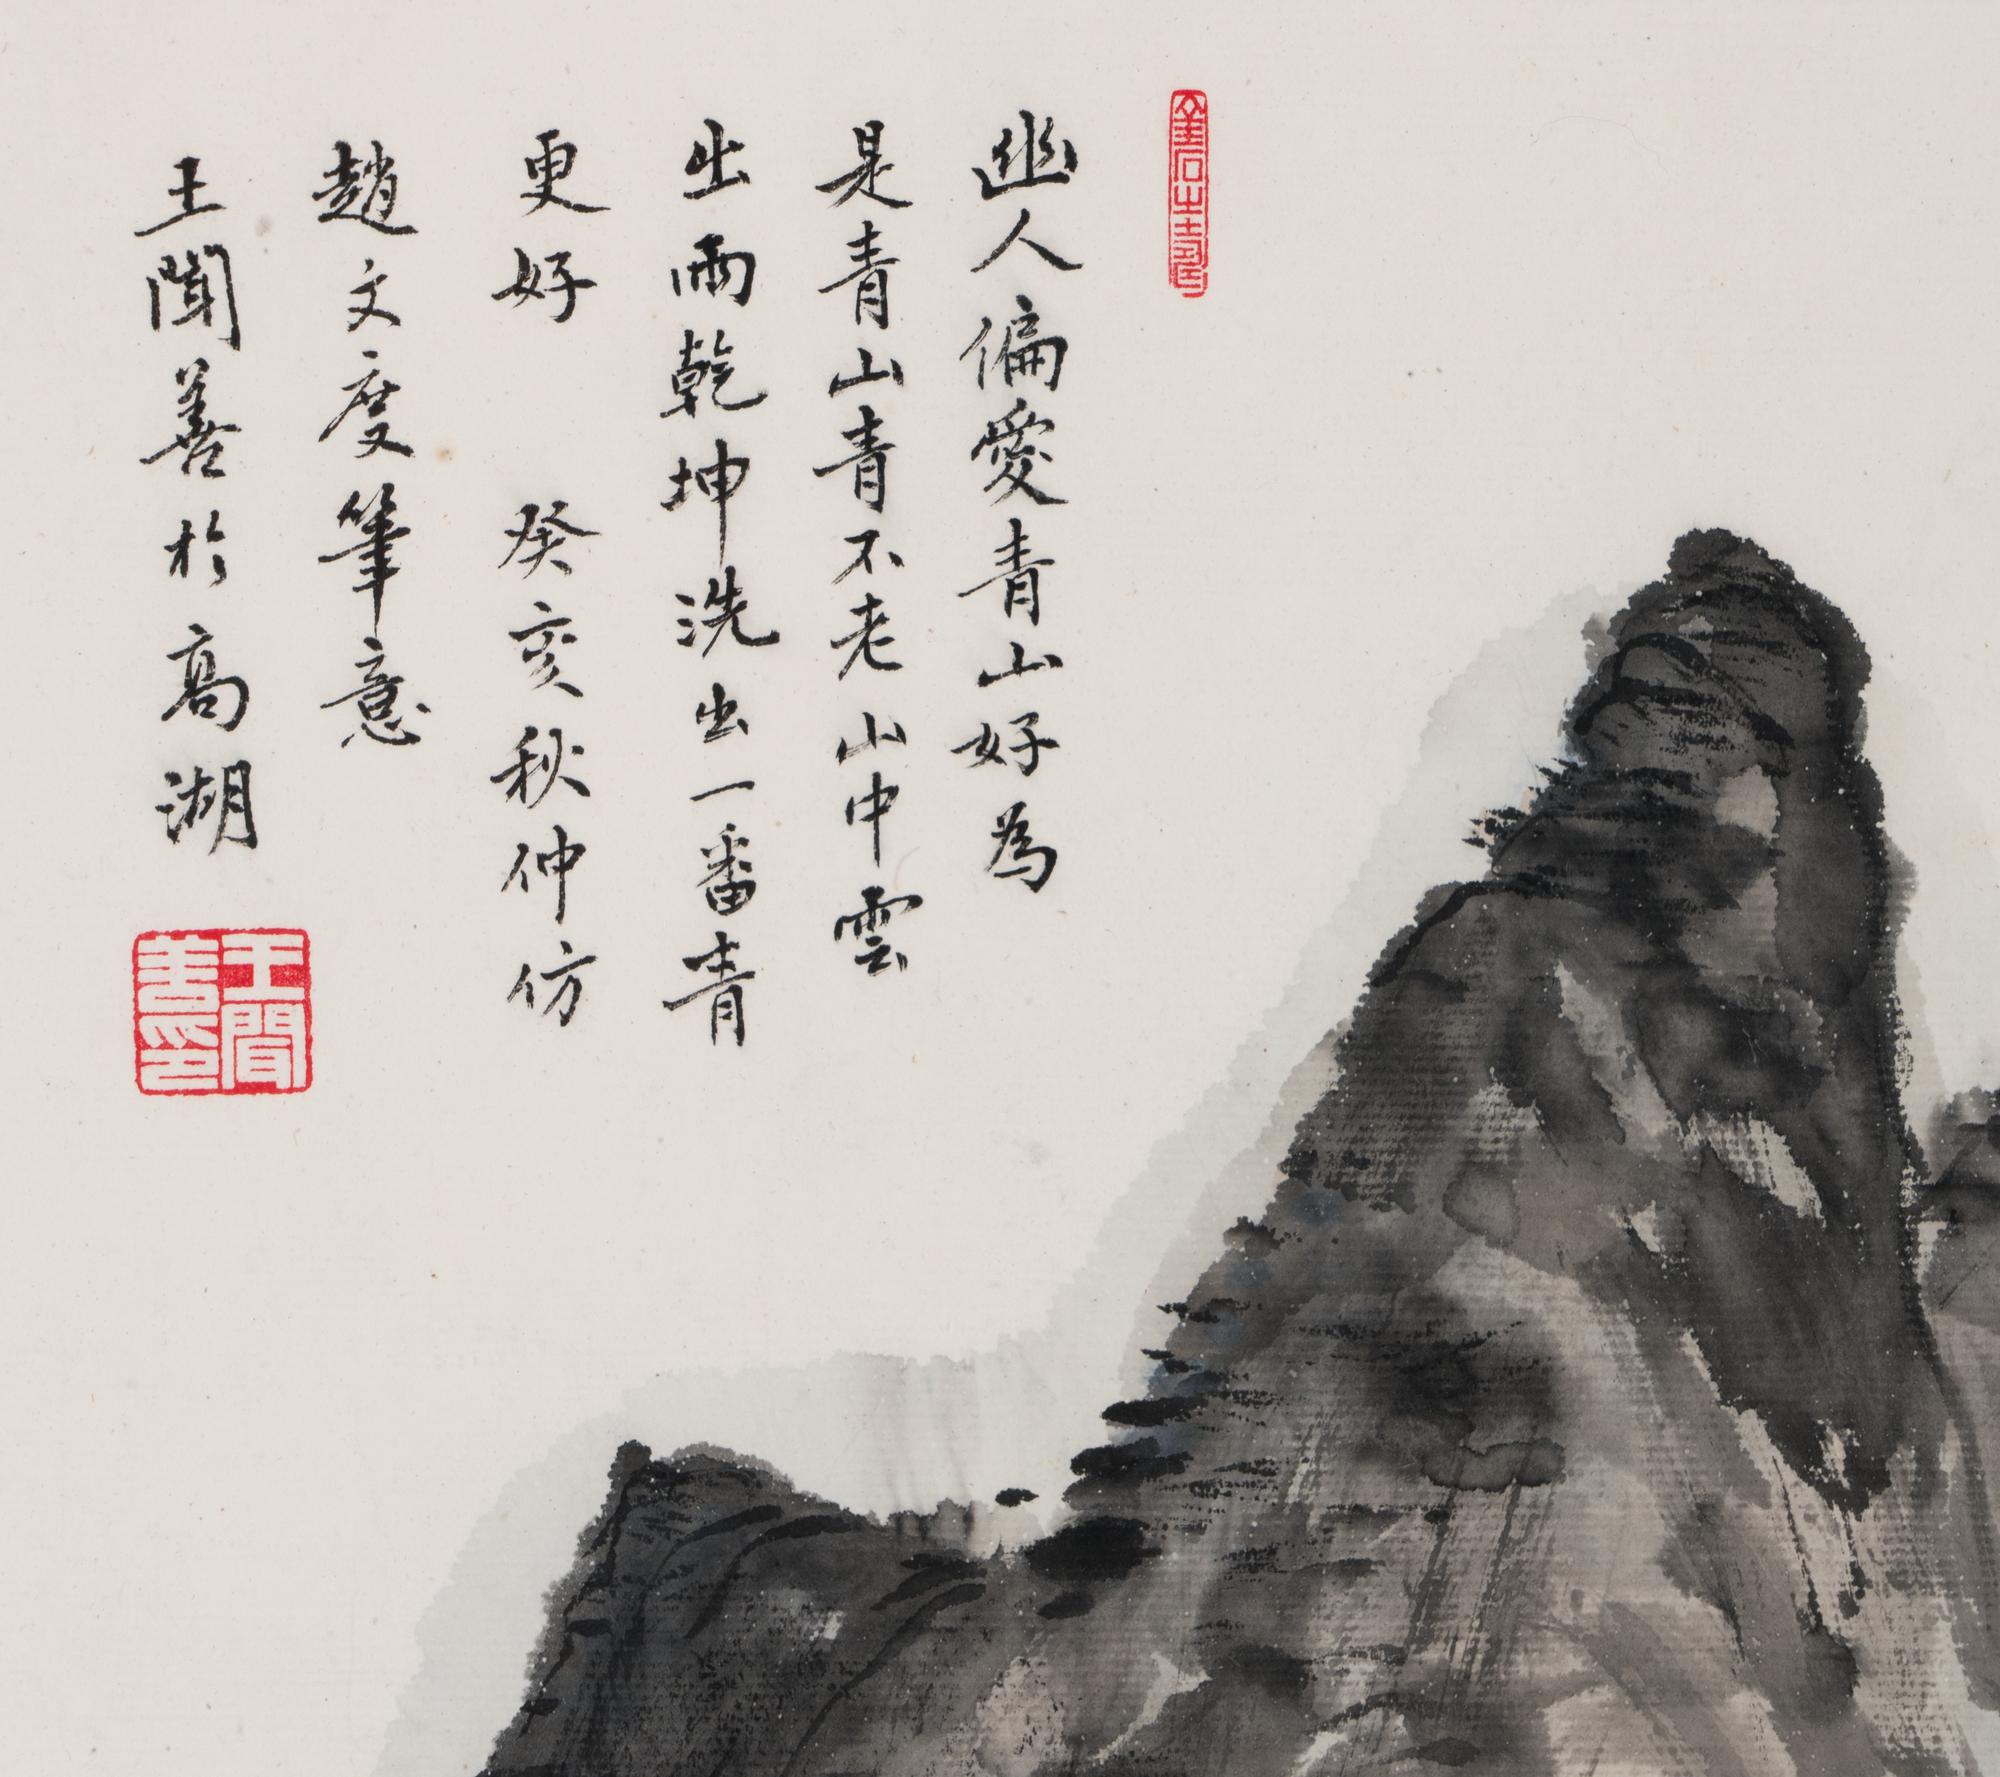 幽人偏愛青山好為
是青山青不老山中雲
出雨乾坤洗出一番青
更好 癸亥秋仲仿
趙文度筆意
王聞善於高湖
王聞
善印